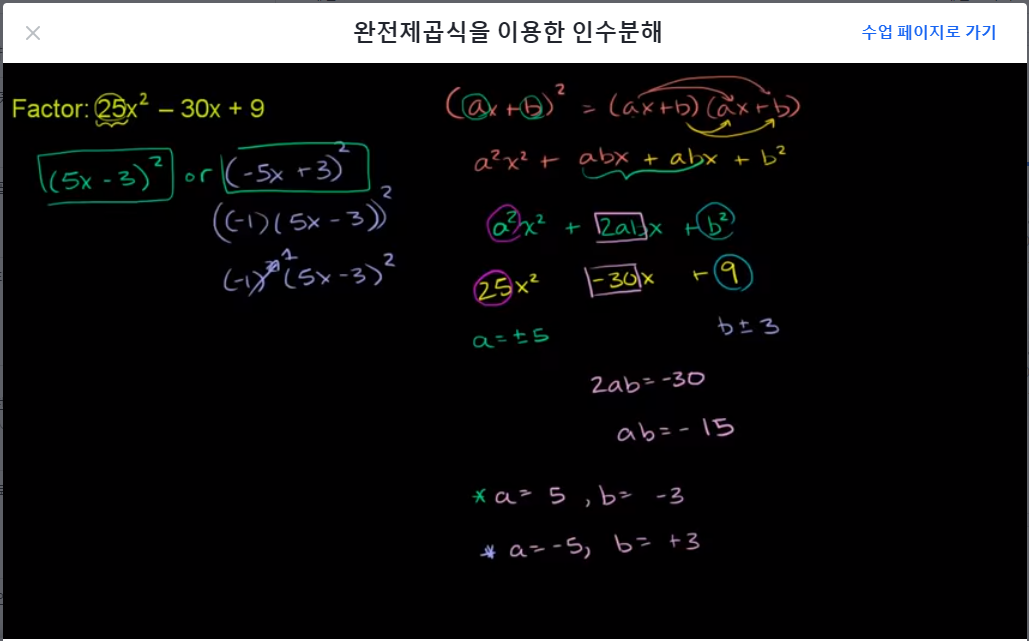 완전제곱식을 이용한 인수분해
수업 페이지로 가기
Factor: 25x² – 30x + 9
(5x - 3)² or (-5x + 3)²
((-1)(5x - 3))²
(-1)² 1 (5x - 3)²
(ax + b)² = (ax+b)(ax+b)
a²x² + abx + abx + b²
a²x² + 2abx + b²
25x² -30x + 9
a = ± 5
b ± 3
2ab = -30
ab = - 15
* a = 5 , b = -3
* a = -5, b = +3